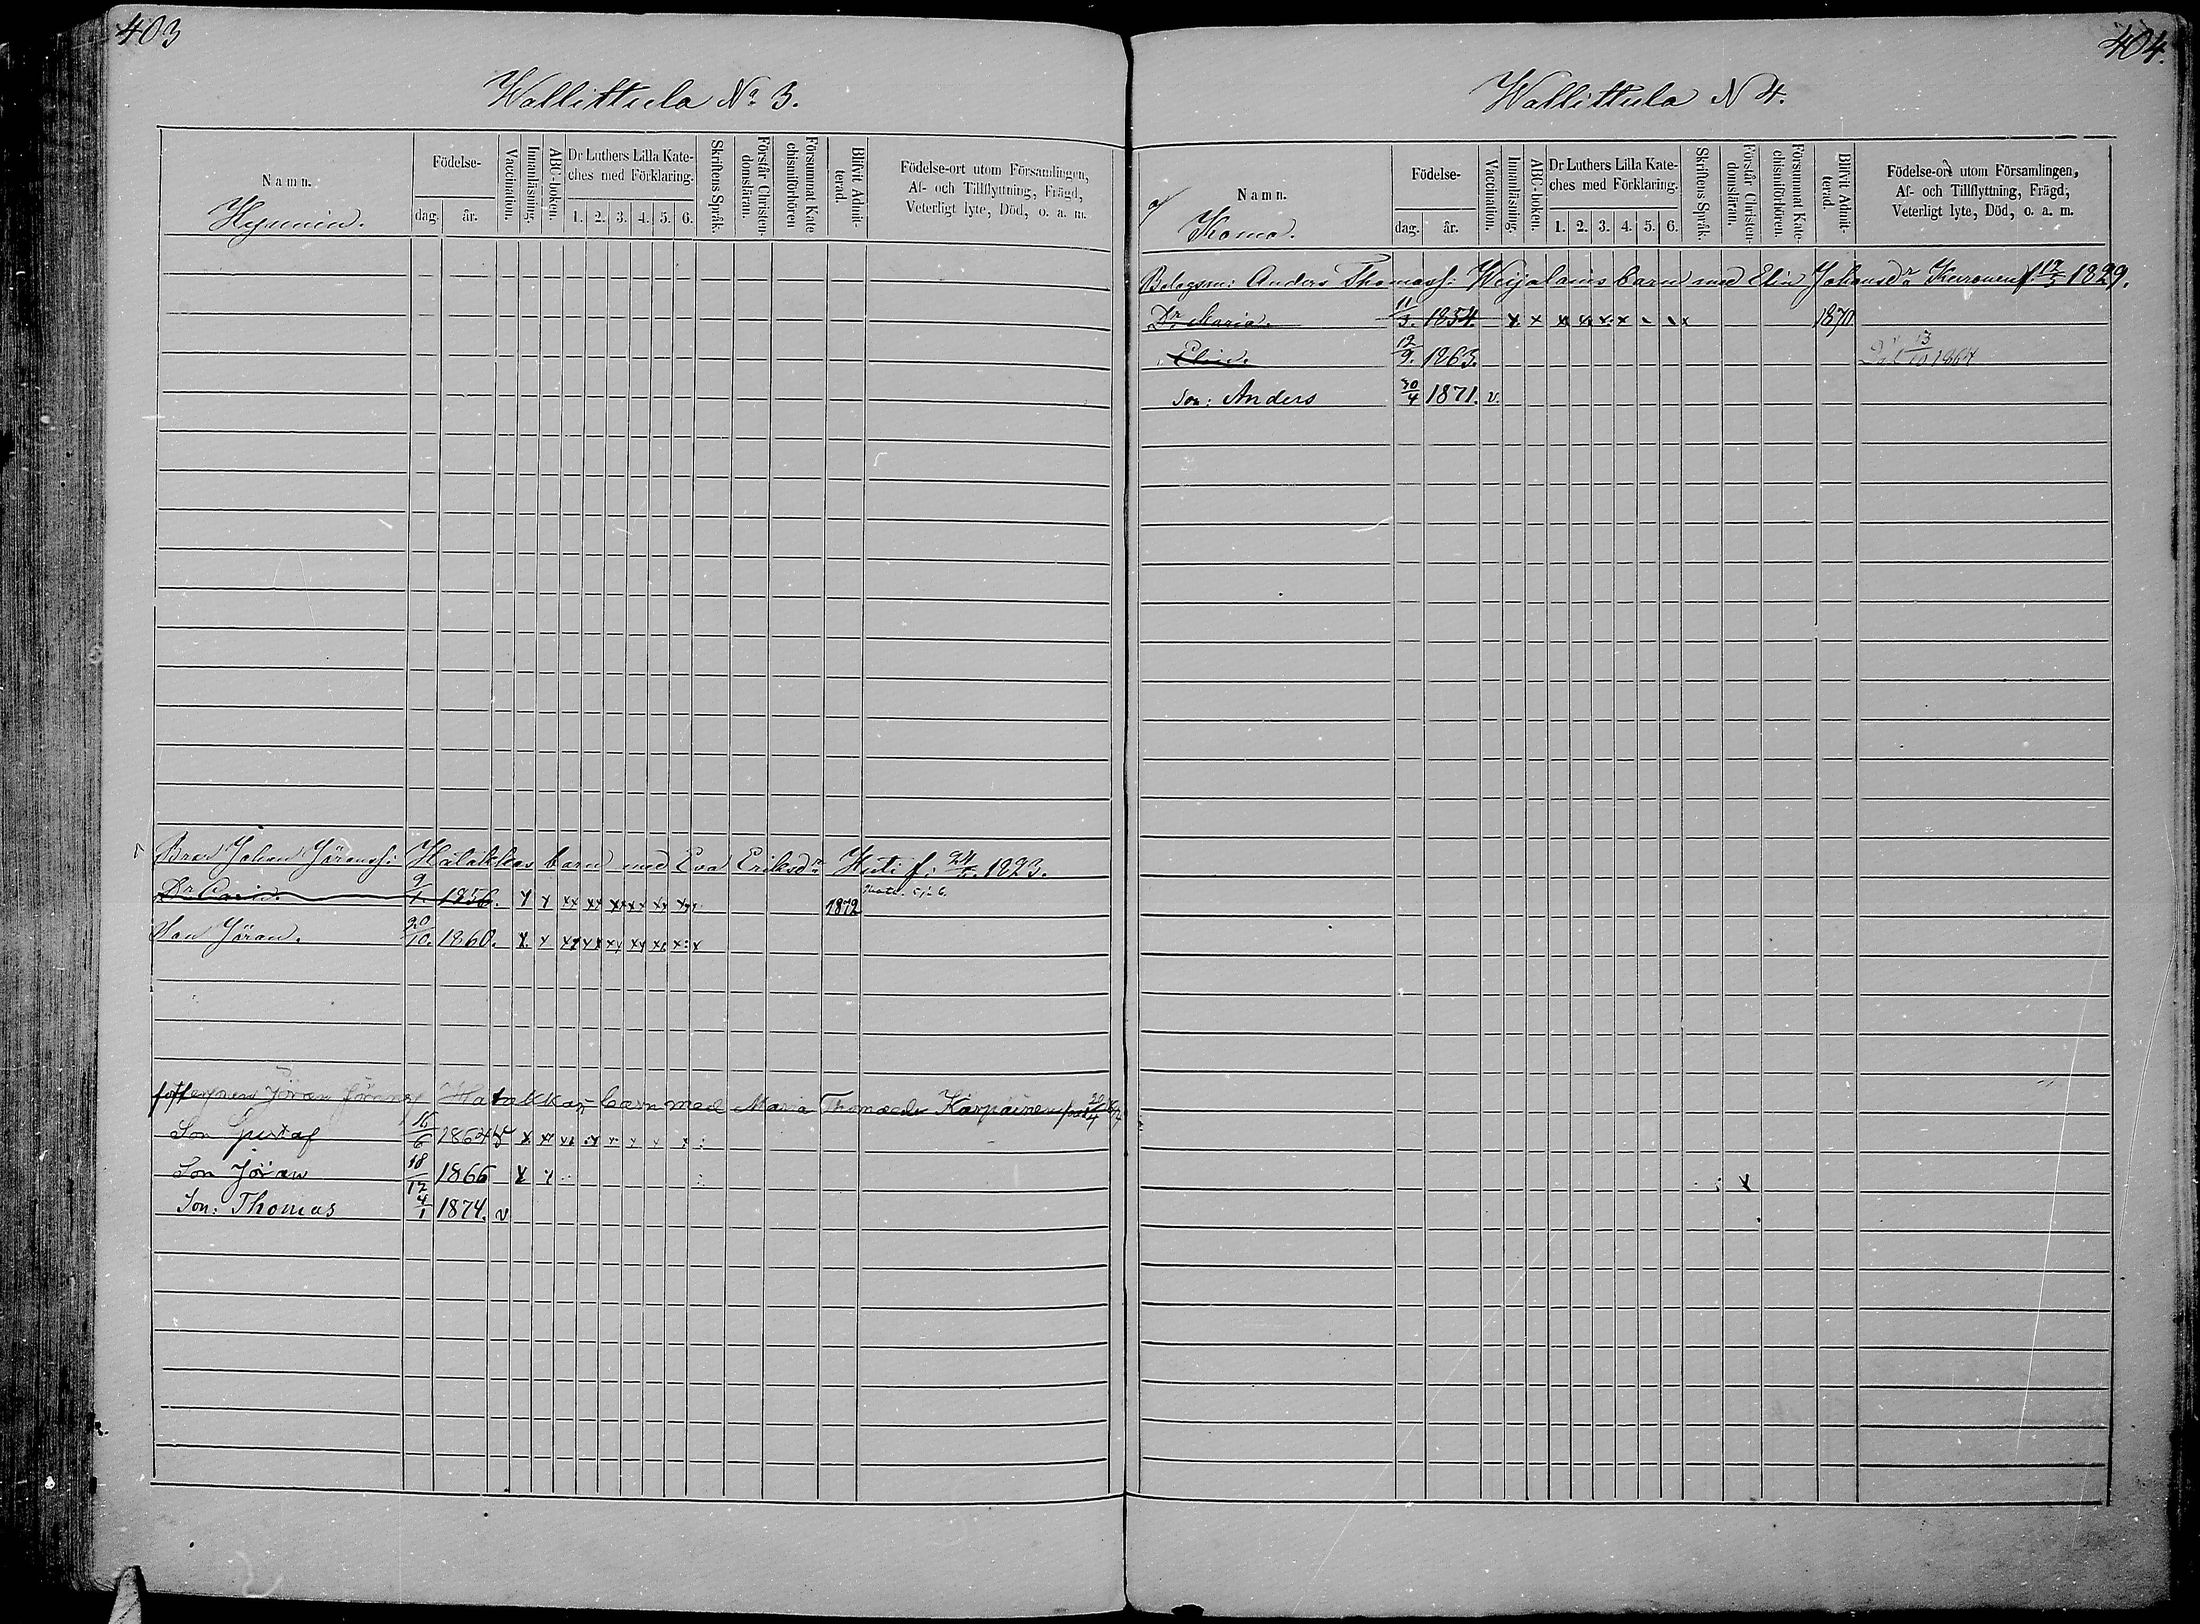 403
Wallittula No 3.
Namn.
Hyminin.
Födelse-
dag. år.
Vaccination.
Innanläsning.
ABC-boken.
Dr Luthers Lilla Kate-
ches med Förklaring.
1. 2. 3. 4. 5. 6.
Skriftens Språk.
Förstår Christen-
domsläran.
Försummat Kate
chismiförhören
Blifvit Admit-
terad.
Födelse-ort utom Församlingen,
Af- och Tillflyttning, Frägd,
Veterligt lyte, Död, o. a. m.
Bror Johan Göranss: barn med Eva Eriksdr Huti f: 24/5. 1823.
Dr Carin. 9/1. 1856. x x xx xx xx xx xx 1872
Son Göran. 20/10. 1860. x x xx xx xx xx xx x x
Jöran barn med Maria Thomasdr Karpainen 20/4
Son Gustaf 16/6 1864 v x xx
Son Jöran 18/12 1866 x
Son: Thomas 4/1 1874. v
404.
Wallittula N 4.
Namn.
Komo.
Födelse-
dag. år.
Vaccination.
Innanläsning.
ABC-boken.
Dr Luthers Lilla Kate-
ches med Förklaring.
1. 2. 3. 4. 5. 6.
Skriftens Språk.
Förstår Christen-
domsläran.
Försummat Kate-
chismiförhören.
Blifvit Admit-
terad.
Födelse-ort utom Församlingen,
Af- och Tillflyttning, Frägd,
Veterligt lyte, Död, o. a. m.
Bolagsm: Anders Thomass: Weijalains barn med Elin Johansdr Kuronen f. 12/5 1829.
Dr Maria. 11/3. 1854. x x x x x x 1870
Elin. 12/9. 1863. 13/10 1864
Son: Anders 30/4 1871. v.
x